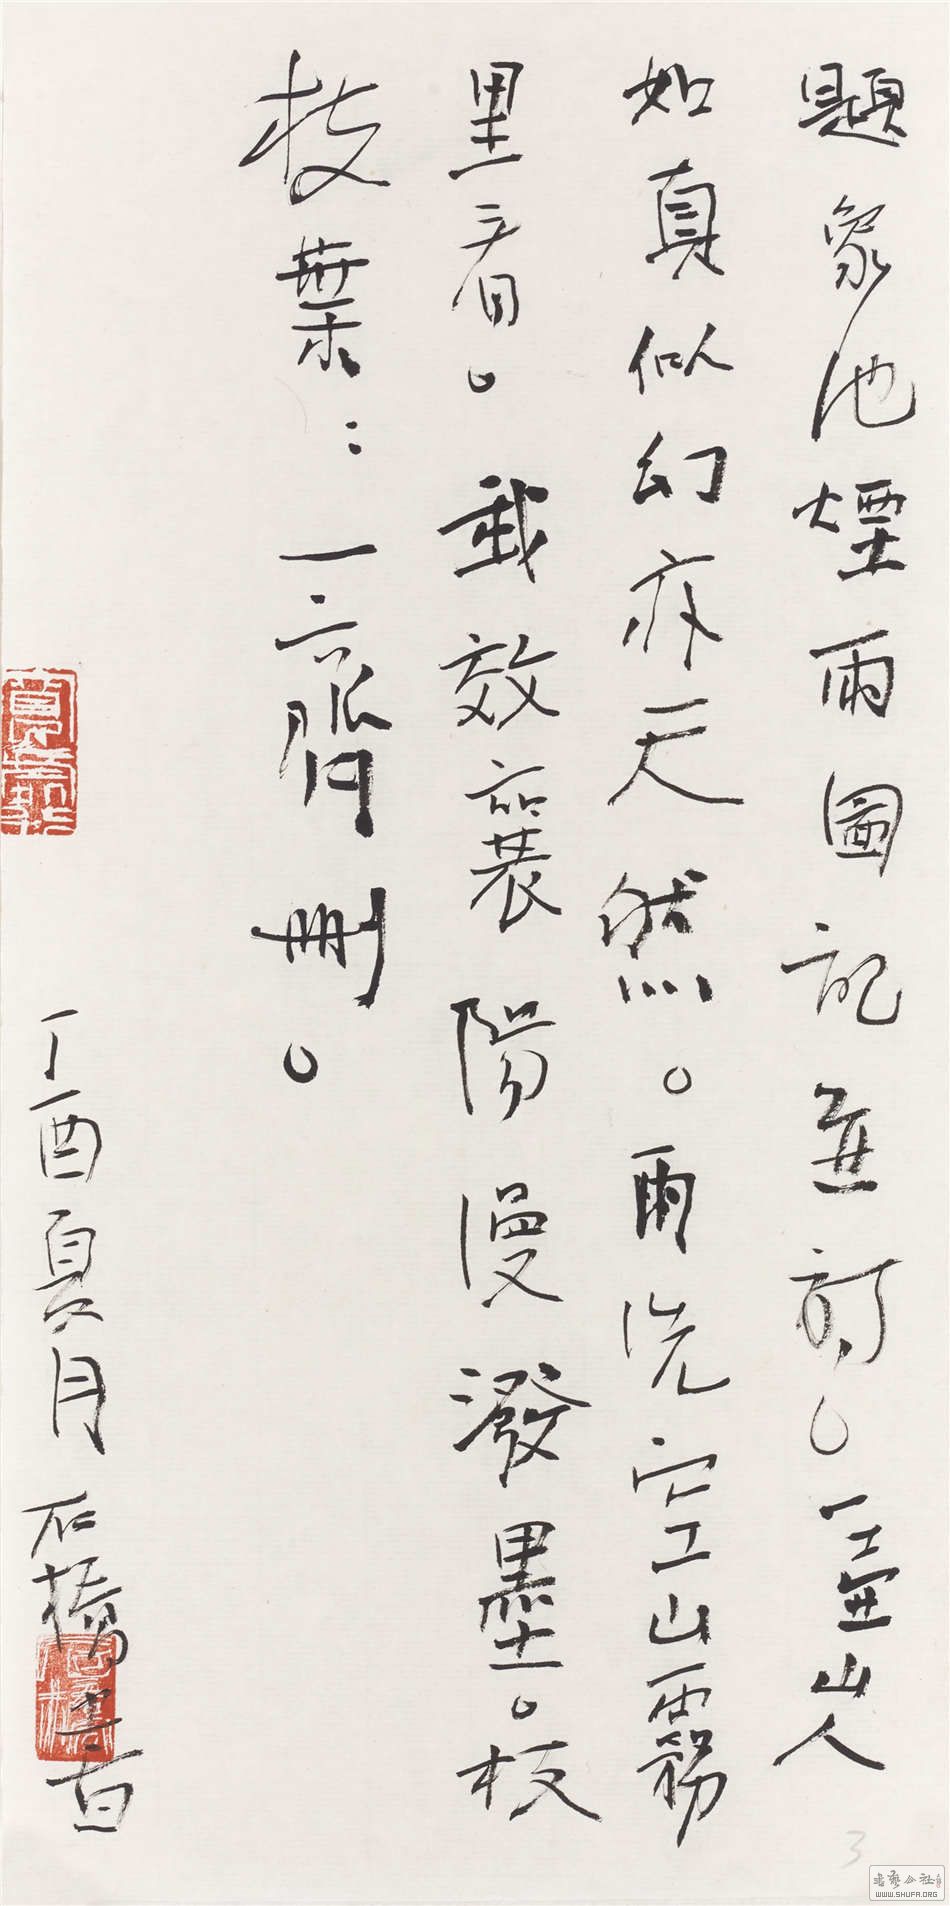 題象池煙雨圖記並詩。壺山人
如真似幻亦天然。雨洗空山霧
里看。我效襄陽漫潑墨。枝
枝葉：一齊刪。
丁酉夏月石橋書
书艺公社
WWW.SHUFA.ORG
3